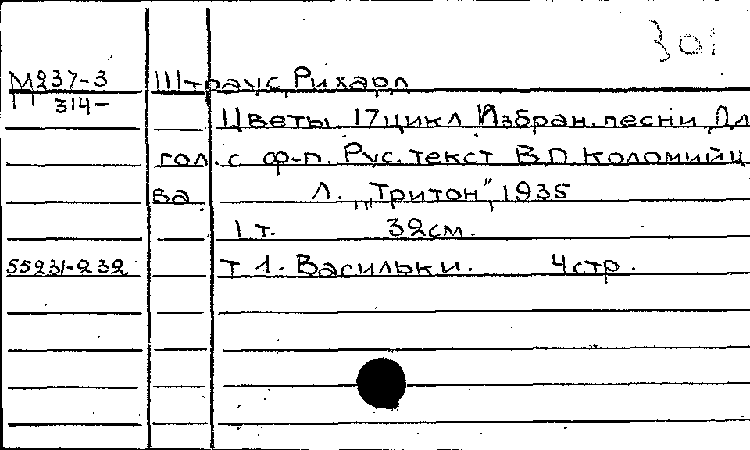 301
М237-3 Штраус, Рихард
П 314-
Цветы. 17 цикл Избран. песни Дл
гол. с ф-п. Рус. текст В.П. Коломийц
ва. Л. „Тритон", 1935
1 т. 32см.
55231-232 т 1. Васильки. 4стр.